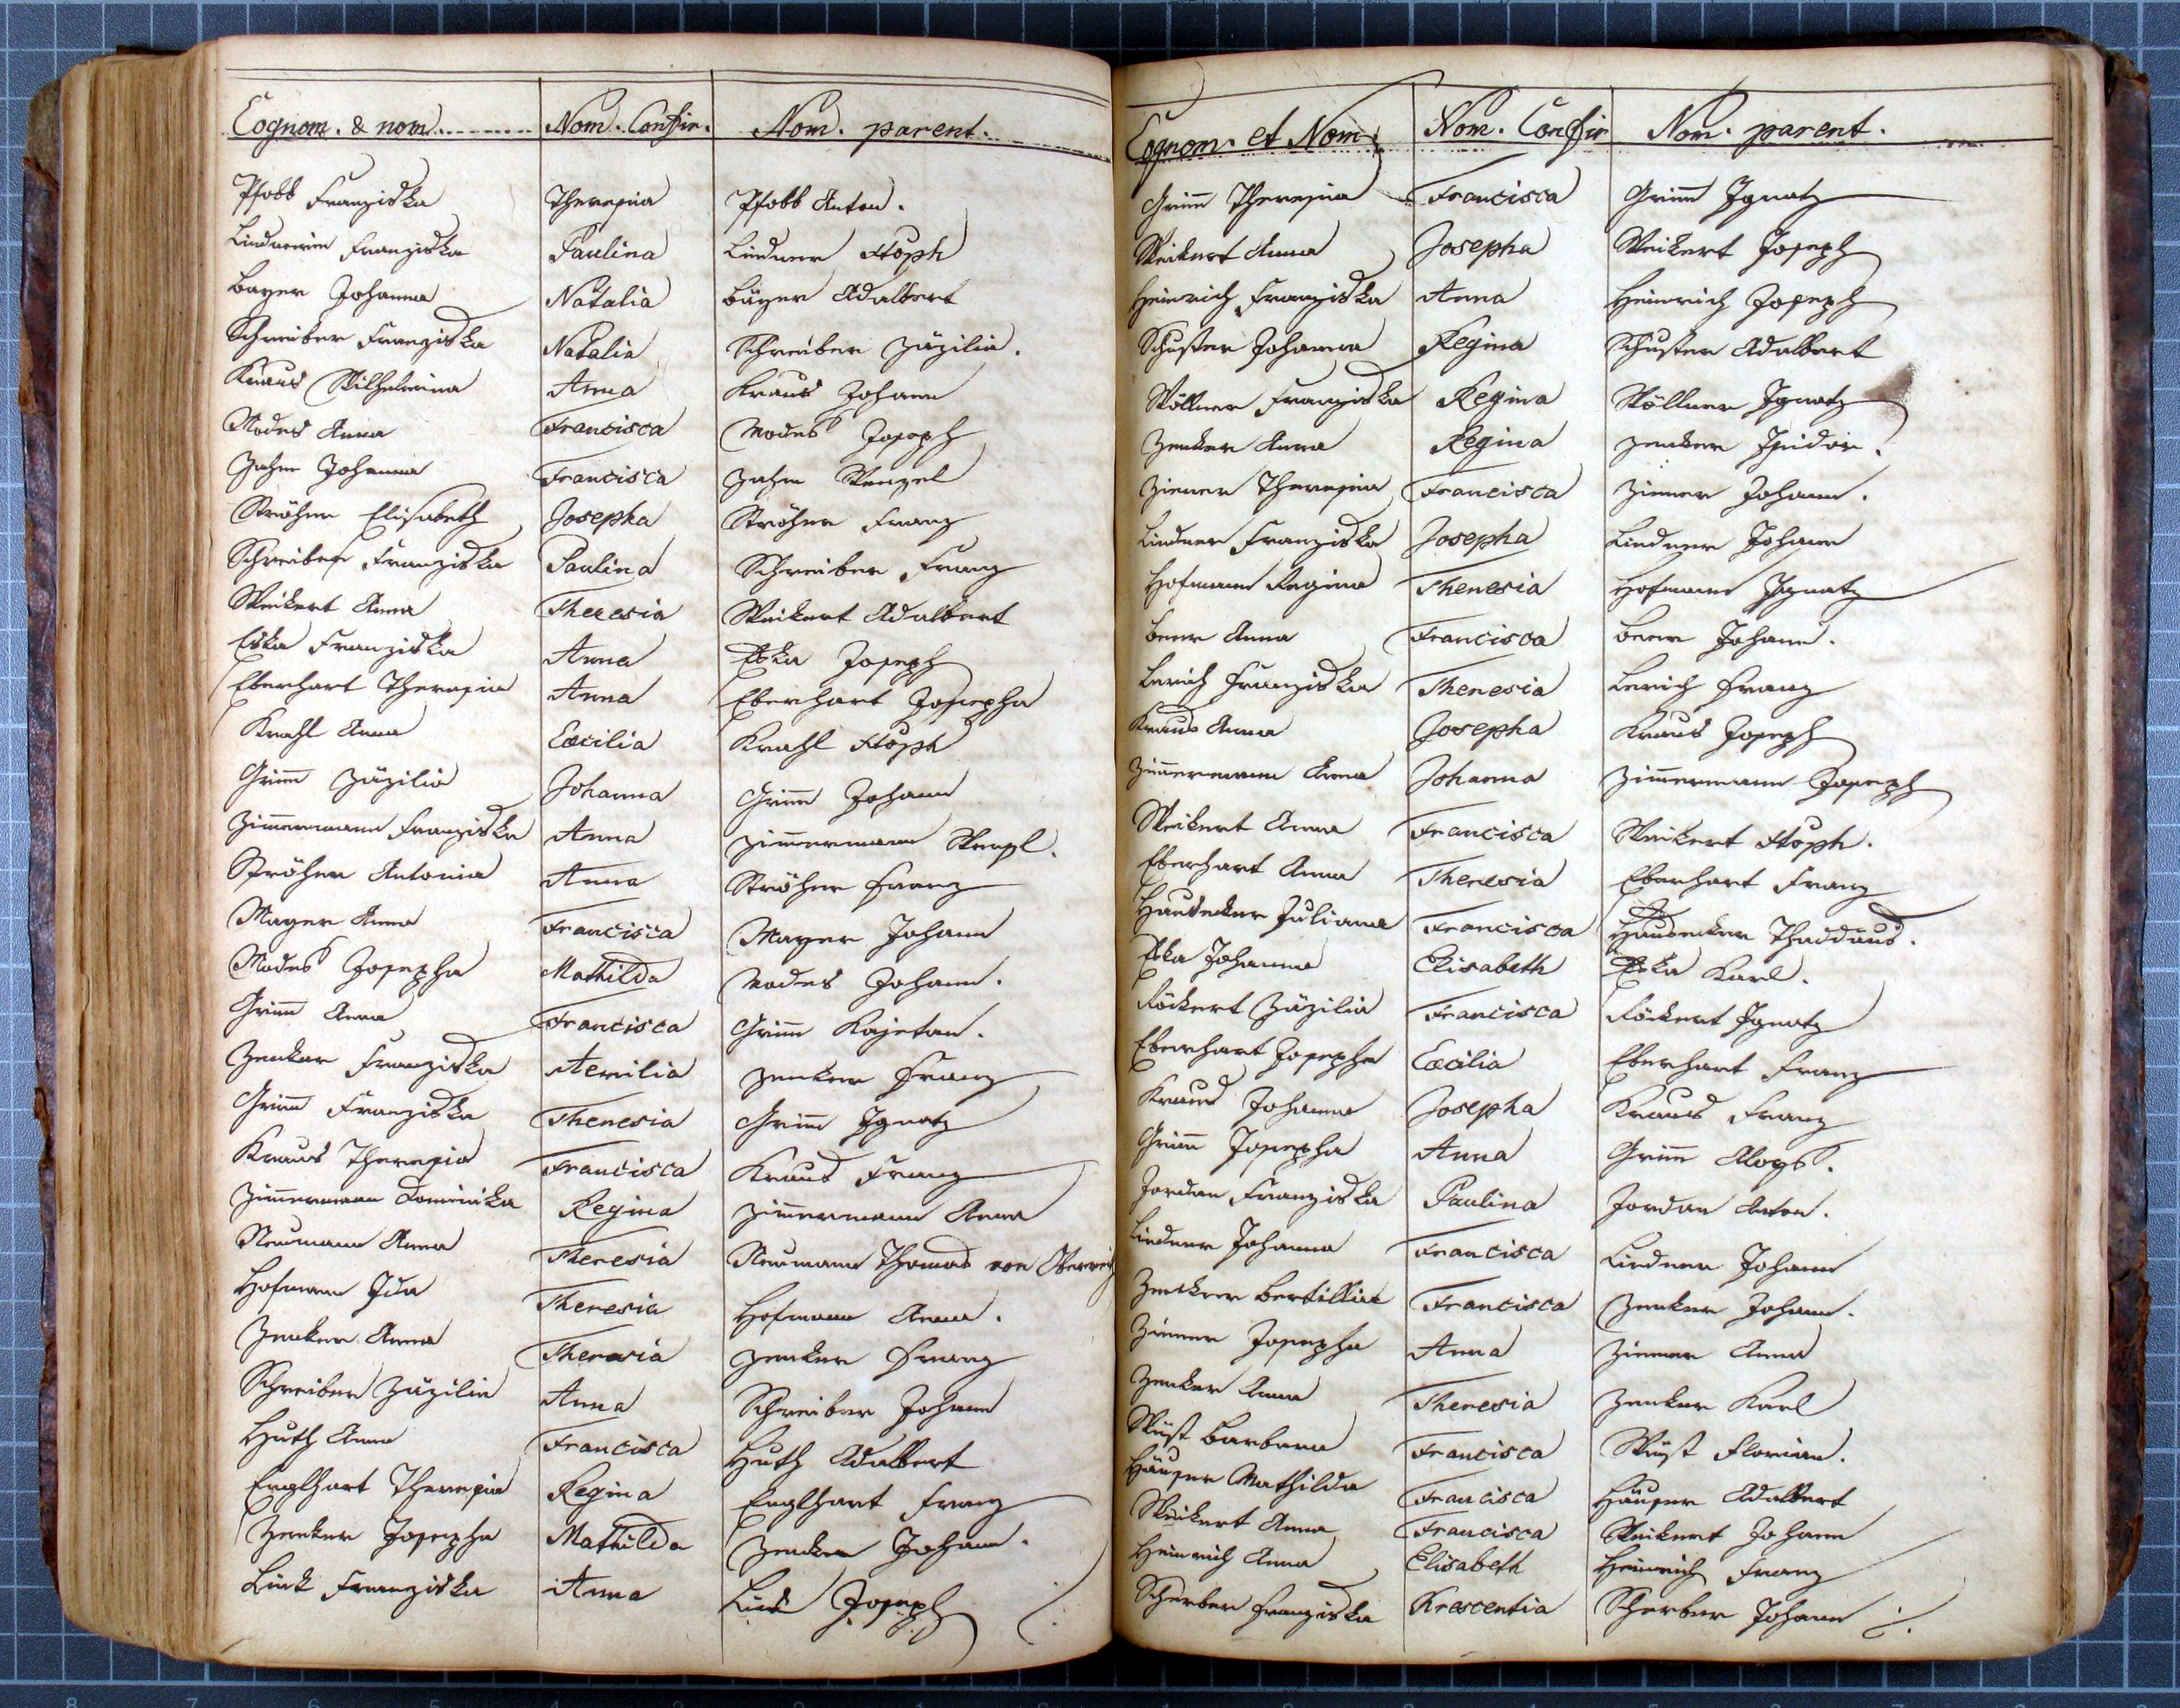 Cognom. & nom. Nom. Confir. Nom. parent.
Pfobb Franziska Theresia Pfobb Anton.
Lindnerin Franziska Paulina Lindner Stoph
Bayer Johanna Natalia Bayer Adalbert
Schreiber Franziska Natalia Schreiber Zäzilia.
Kraus Wilhelmina Anna Kraus Johann
Modes Anna Francisca Modes Joseph
Jahn Johanna Francisca Jahn Wenzel
Ströher Elisabeth Josepha Ströher Franz
Schreiber Franziska Paulina Schreiber Franz
Weikert Anna Theresia Weikert Adalbert
Eska Franziska Anna Eska Joseph
Eberhart Theresia Anna Eberhart Josepha
Krahl Anna Cæcilia Krahl Stoph
Grim̄ Zäzilia Johanna Grim̄ Johann
Zim̄ermann Franziska Anna Zim̄ermann Wenzl.
Ströher Antonia Anna Ströher Franz
Mayer Anna Francisca Mayer Johann
Modes Josepha Mathilda Modes Johann.
Grim̄ Anna Francisca Grim̄ Kajetan.
Zenker Franziska Aemilia Zenker Franz
Grim̄ Franziska Theresia Grim̄ Ignatz
Kraus Theresia Francisca Kraus Franz
Zim̄ermann Dominika Regina Zim̄ermann Anna
Neumann Anna Theresia Neumann Thomas von
Hofmann Ida Theresia Hofmann Anna.
Zenker Anna Theresia Zenker Franz
Schreiber Zäzilia Anna Schreiber Johann
Huth Anna Francisca Huth Adalbert
Englhart Theresia Regina Englhart Franz
Zenker Josepha Mathilda Zenker Johann.
Link Franziska Anna Joseph
Cognom. et Nom. Nom. Confir Nom. parent.
Grim̄ Theresia Francisca Grim̄ Ignatz
Weikert Anna Josepha Weikert Joseph
Heinrich Franziska Anna Heinrich Joseph
Schuster Johanna Regina Schuster Adalbert
Wöllner Franziska Regina Wöllner Ignatz
Zenker Anna Regina Zenker Isidor.
Ziener Theresia Francisca Ziener Johann.
Lindner Franziska Josepha Lindner Johann
Hofmann Regina Theresia Hofmann Ignatz
Beer Anna Francisca Beer Johann.
Lerich Franziska Theresia Lerich Franz
Kraus Anna Josepha Kraus Joseph
Zim̄ermann Anna Johanna Zim̄ermann Joseph
Weikert Anna Francisca Weikert Stoph.
Eberhart Anna Theresia Eberhart Franz
Hausecker Juliana Francisca Hausecker Thaddäus.
Eska Johanna Elisabeth Eska Karl.
Röckert Zäzilia Francisca Röckert Ignatz
Eberhart Josepha Cæcilia Eberhart Franz
Kraus Johanna Josepha Kraus Franz
Grim̄ Josepha Anna Grim̄ Aloys.
Jordan Franziska Paulina Jordan Anton.
Lindner Johanna Francisca Lindner Johann
Zenker Bertillia Francisca Zenker Johann.
Ziener Josepha Anna Ziener Anna
Zenker Anna Theresia Zenker Karl
Wüst Barbara Francisca Wüst Florian.
Häuser Mathilda Francisca Häuser Adalbert
Weikert Anna Francisca Weikert Johann
Heinrich Anna Elisabeth Heinrich Franz
Scherber Franziska Krescentia Scherber Johann